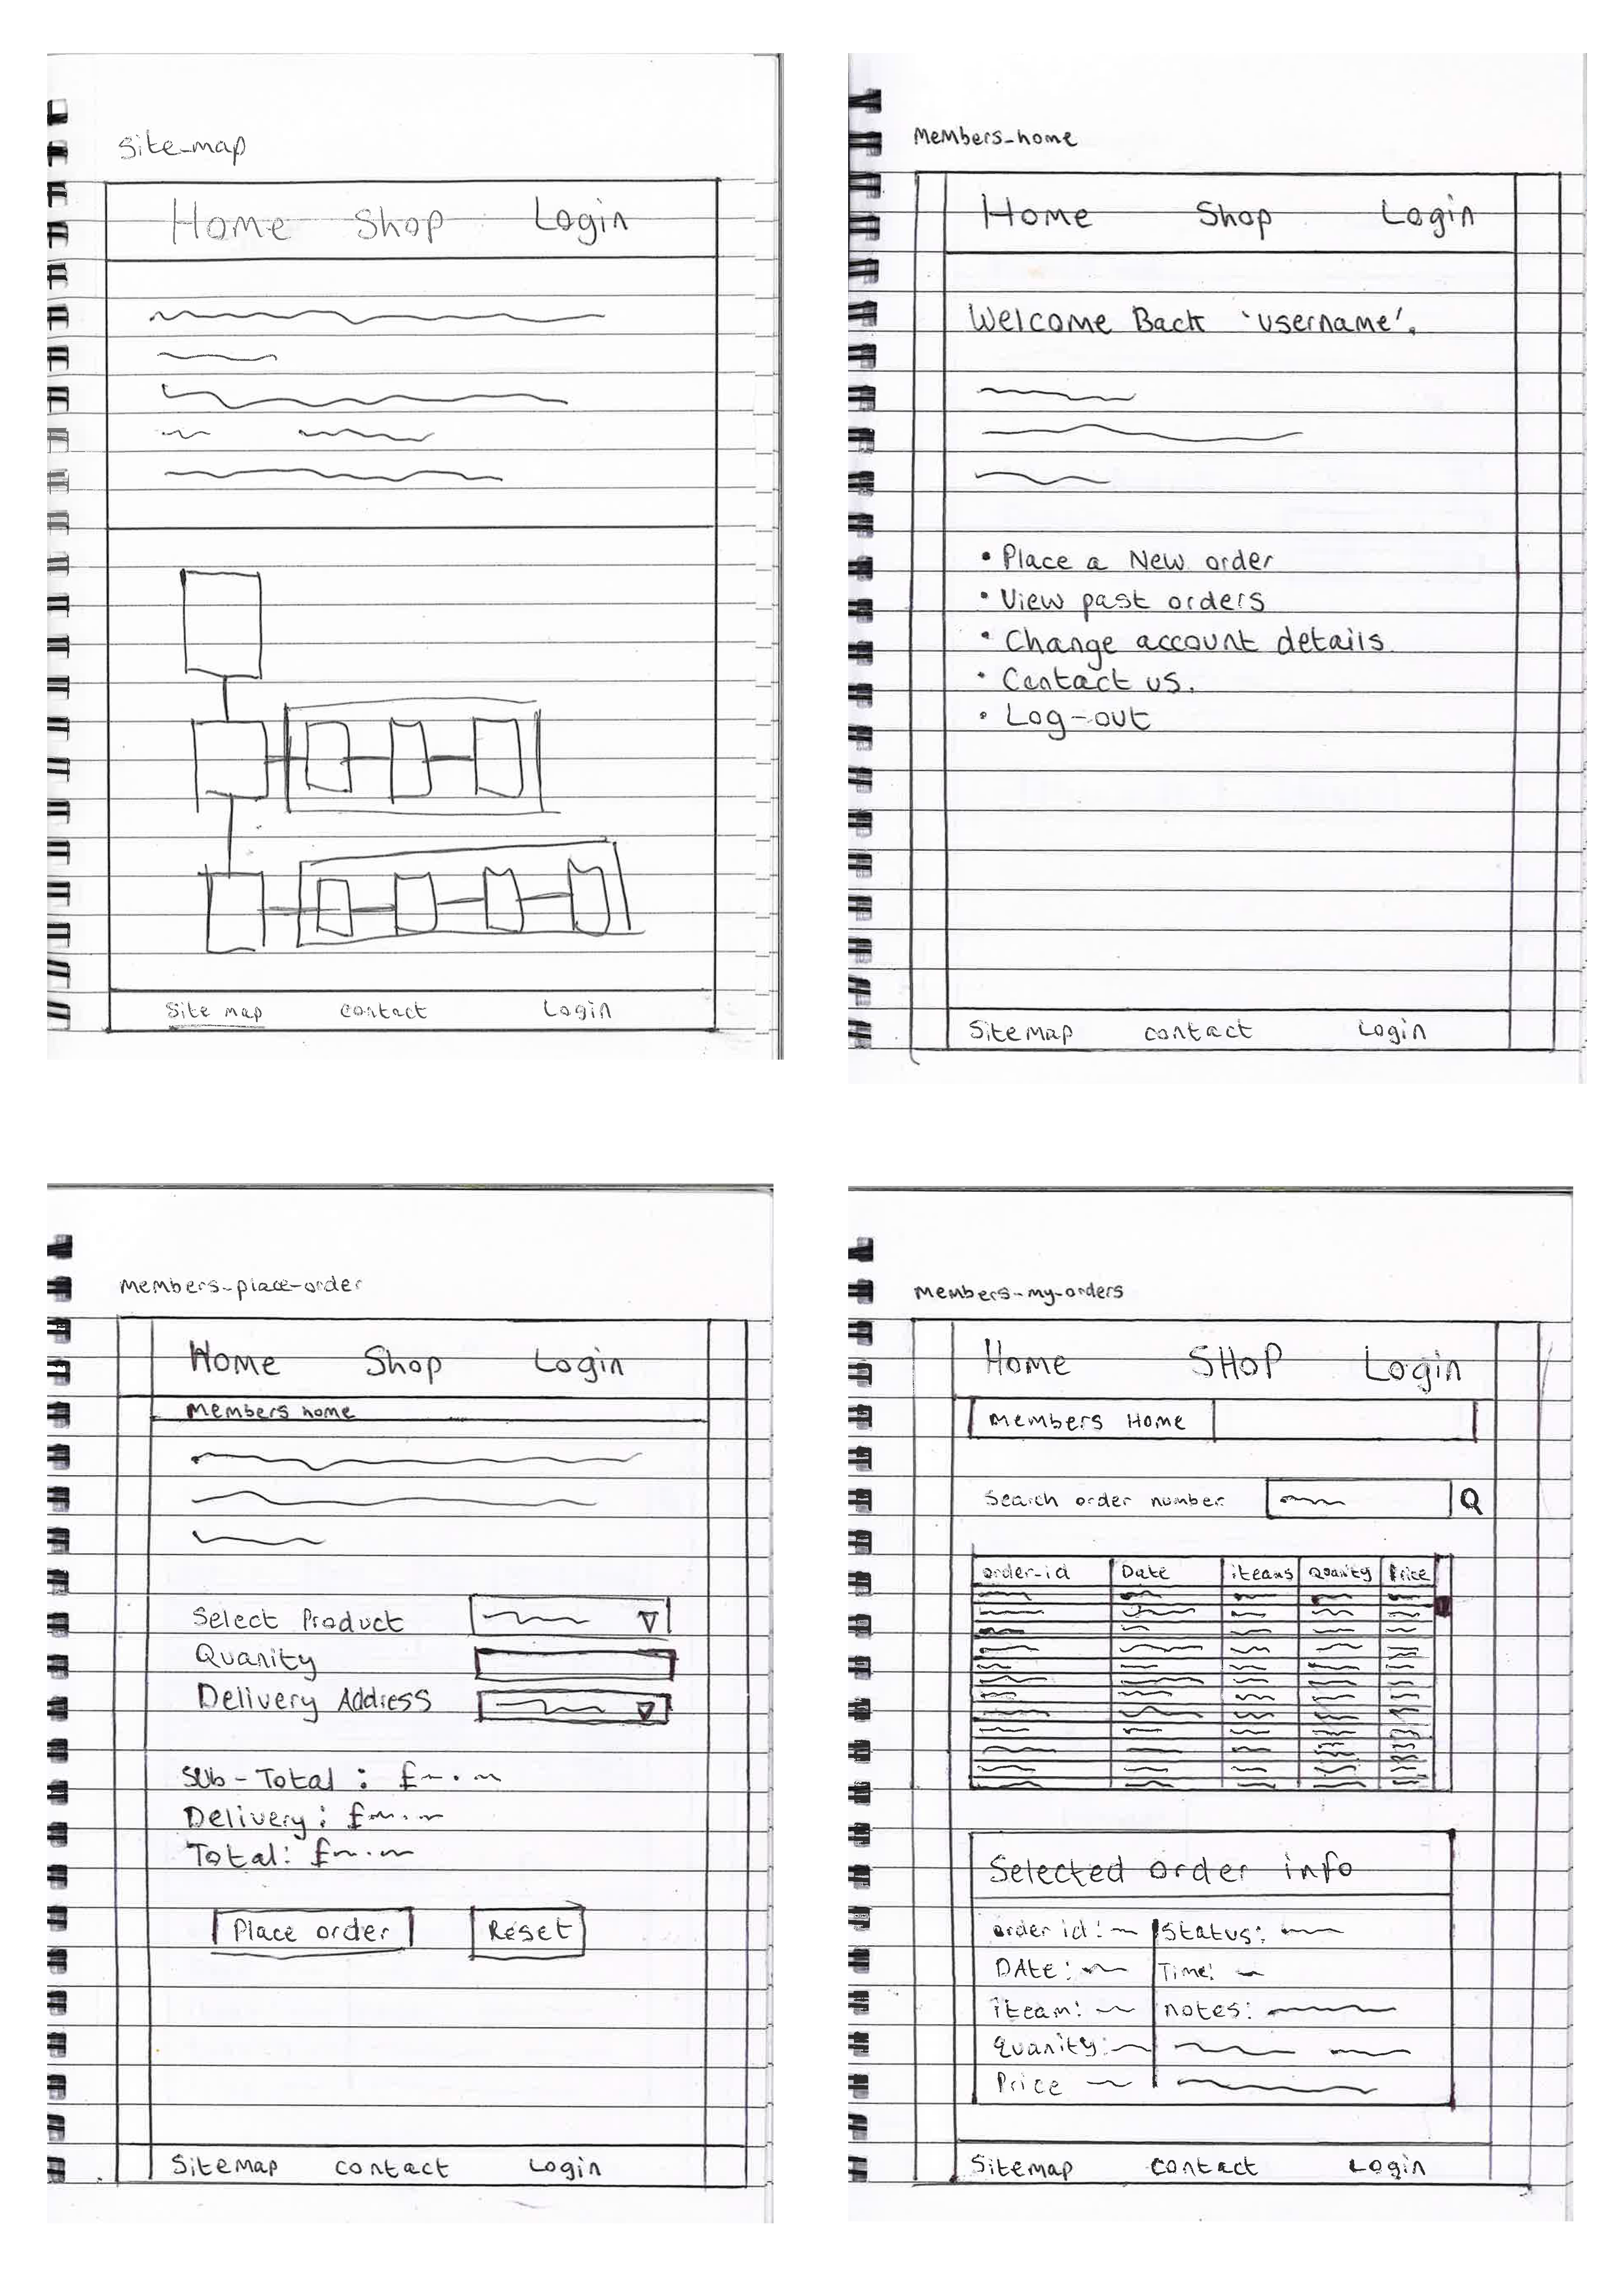 Site-map
Home Shop Login
Site map contact Login
Members-home
Home Shop Login
Welcome Back 'username'.
• Place a New order
• View past orders
• Change account details
• Contact us.
• Log-out
Sitemap contact Login
Members-place-order
Home Shop Login
Members home
Select Product
Quanity
Delivery Address
Sub-Total : £
Delivery: £
Total: £
Place order Reset
Sitemap contact Login
Members-my-orders
Home SHOP Login
Members Home
Search order number
order-id Date iteams Quanity Price
Selected order info
order id: Status:
DAte: Time:
iteam: notes:
quanity:
Price
Sitemap contact Login